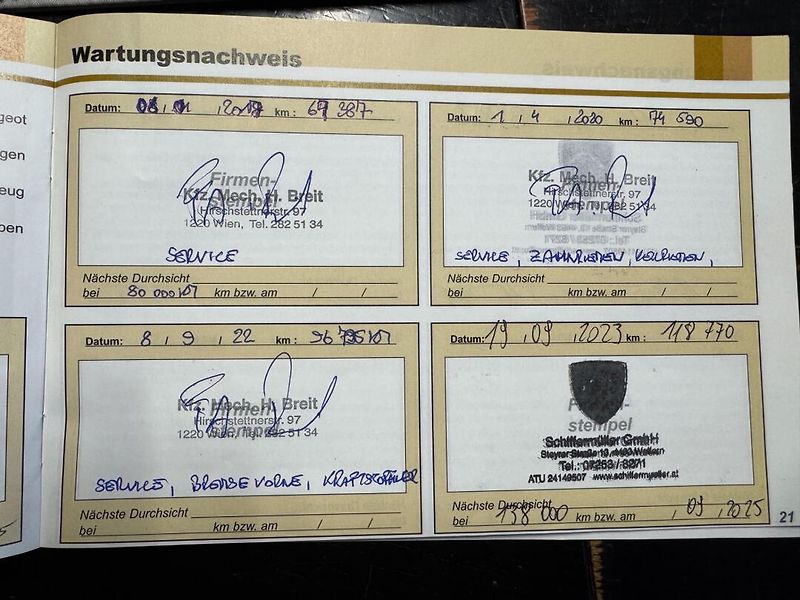 geot
gen
eug
ben
Wartungsnachweis
Datum: , , km: 69 387
Firmen-
Kfz. Mech. H. Breit
Hirschstettnerstr. 97
1220 Wien, Tel. 282 51 34
SERVICE
Nächste Durchsicht
bei 80 000 km bzw. am / /
Datum: 1 , 4 , 2020 km: 74 590
Kfz. Mech. H. Breit
Hirschstettnerstr. 97
1220 Wien, Tel. 282 51 34
SERVICE, ZAHNRIEMEN, KEILRIEMEN,
Nächste Durchsicht
bei km bzw. am / /
Datum: 8 , 9 , 22 km: 96 795
Kfz. Mech. H. Breit
Firmen-
Hirschstettnerstr. 97
stempel
1220 Wien, Tel. 282 51 34
SERVICE, BREMSE VORNE,
Nächste Durchsicht
bei km bzw. am / /
Datum: 19 , 09 , 2023 km: 118 770
stempel
Schiffermüller GmbH
Steyrer Straße 19, 4493 Wolfern
Tel.: 07253 / 8271
ATU 24149507 www.schiffermueller.at
Nächste Durchsicht
bei 138 000 km bzw. am / 09 / 2025
21